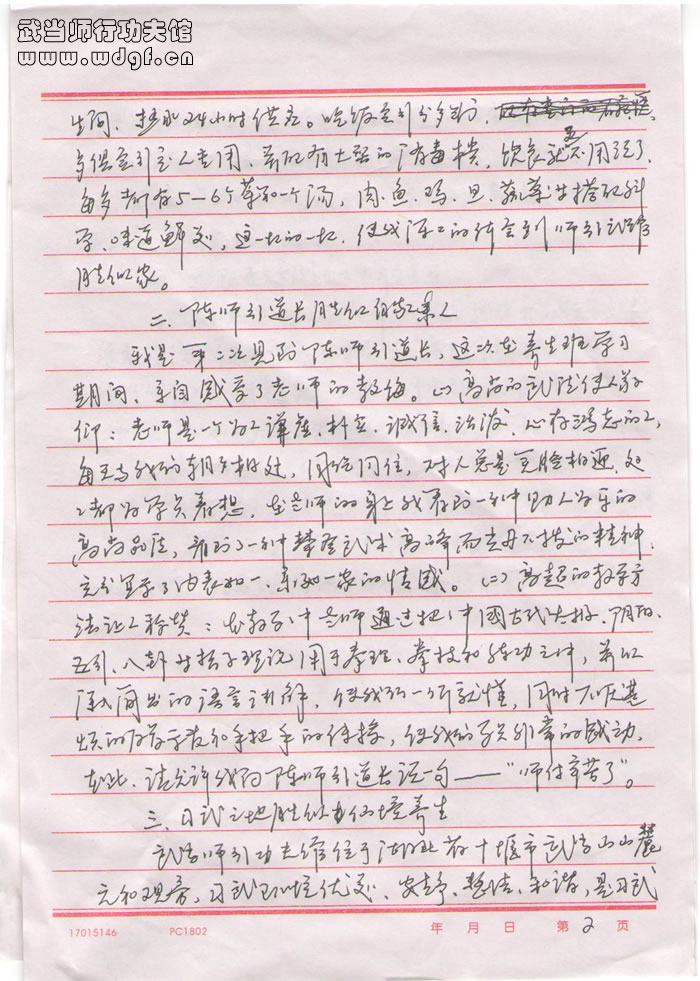 武当师行功夫馆
www.wdgf.cn
生间、热水24小时供应。吃饭实行分多行、
多俱实引专人专用,并配有大型的消毒柜,饮食就更不用说了
每多都有5-6个菜和一个汤,肉、鱼、鸡、旦、蔬菜等搭配科
学、味道鲜美,这一切的一切,使我深深的体会到师行武馆
胜似家。
二、陈师行道长胜似自家亲人
我是第二次见到陈师行道长,这次在养生班学习
期间、亲自感受了老师的教诲。(一)高尚的武德使人敬
仰:老师是一个为人谦虚、朴实、诚信、活泼、心存鸿志的人,
每天与我们朝夕相处,同吃同住,对人总是笑脸相迎,处
处都为学员着想,在老师的身上我看到一种助人为乐的
高尚品德,看到了一种攀登武术高峰而坚韧不拔的精神,
充分显示了内表如一、亲如一家的情感。(二)高超的教学方
法让人称赞:在教学中老师通过把中國古代太极、阴阳、
五行、八卦等搭子理论用于拳理、拳技和练功之中,并以
深入简出的语言讲解,使我们一听就懂,同时不厌其
烦的反复示范和手把手的传授,使我们学员非常的感动,
在此、请允许我们向陈师行道长说一句——“师付辛苦了”。
三、习武之地胜似办仙境养生
武当师行功夫馆位于湖北省十堰市武当山山麓
元和观旁,习武环境优美、安静、整洁、和谐,是习武
17015146 PC1802 年 月 日 第 2 页